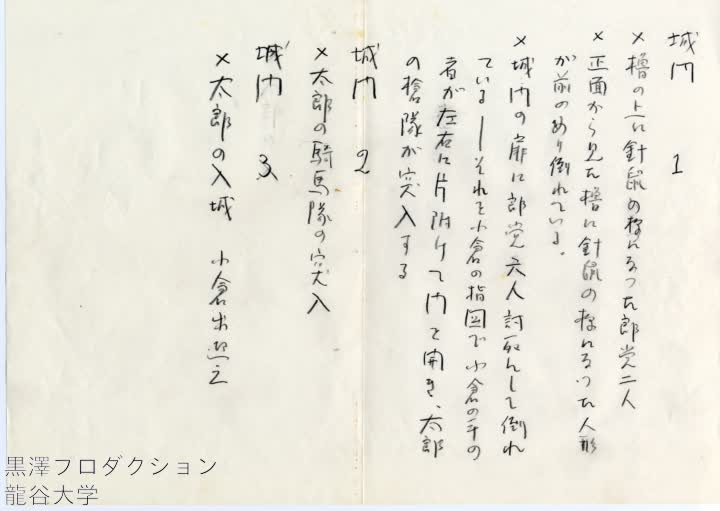 城門 1
× 櫓の上に針鼠の様になった郎党二人
× 正面から見た櫓に針鼠の様になった人形
が前のめり倒れている。
× 城門の扉に郎党六人討死して倒れ
ている──それを小倉の指図で小倉の手の
者が左右に片附けて門を開き、太郎
の槍隊が突入する
城門 2
× 太郎の騎馬隊の突入
城門 3
× 太郎の入城 小倉出迎え
黒澤プロダクション
龍谷大学